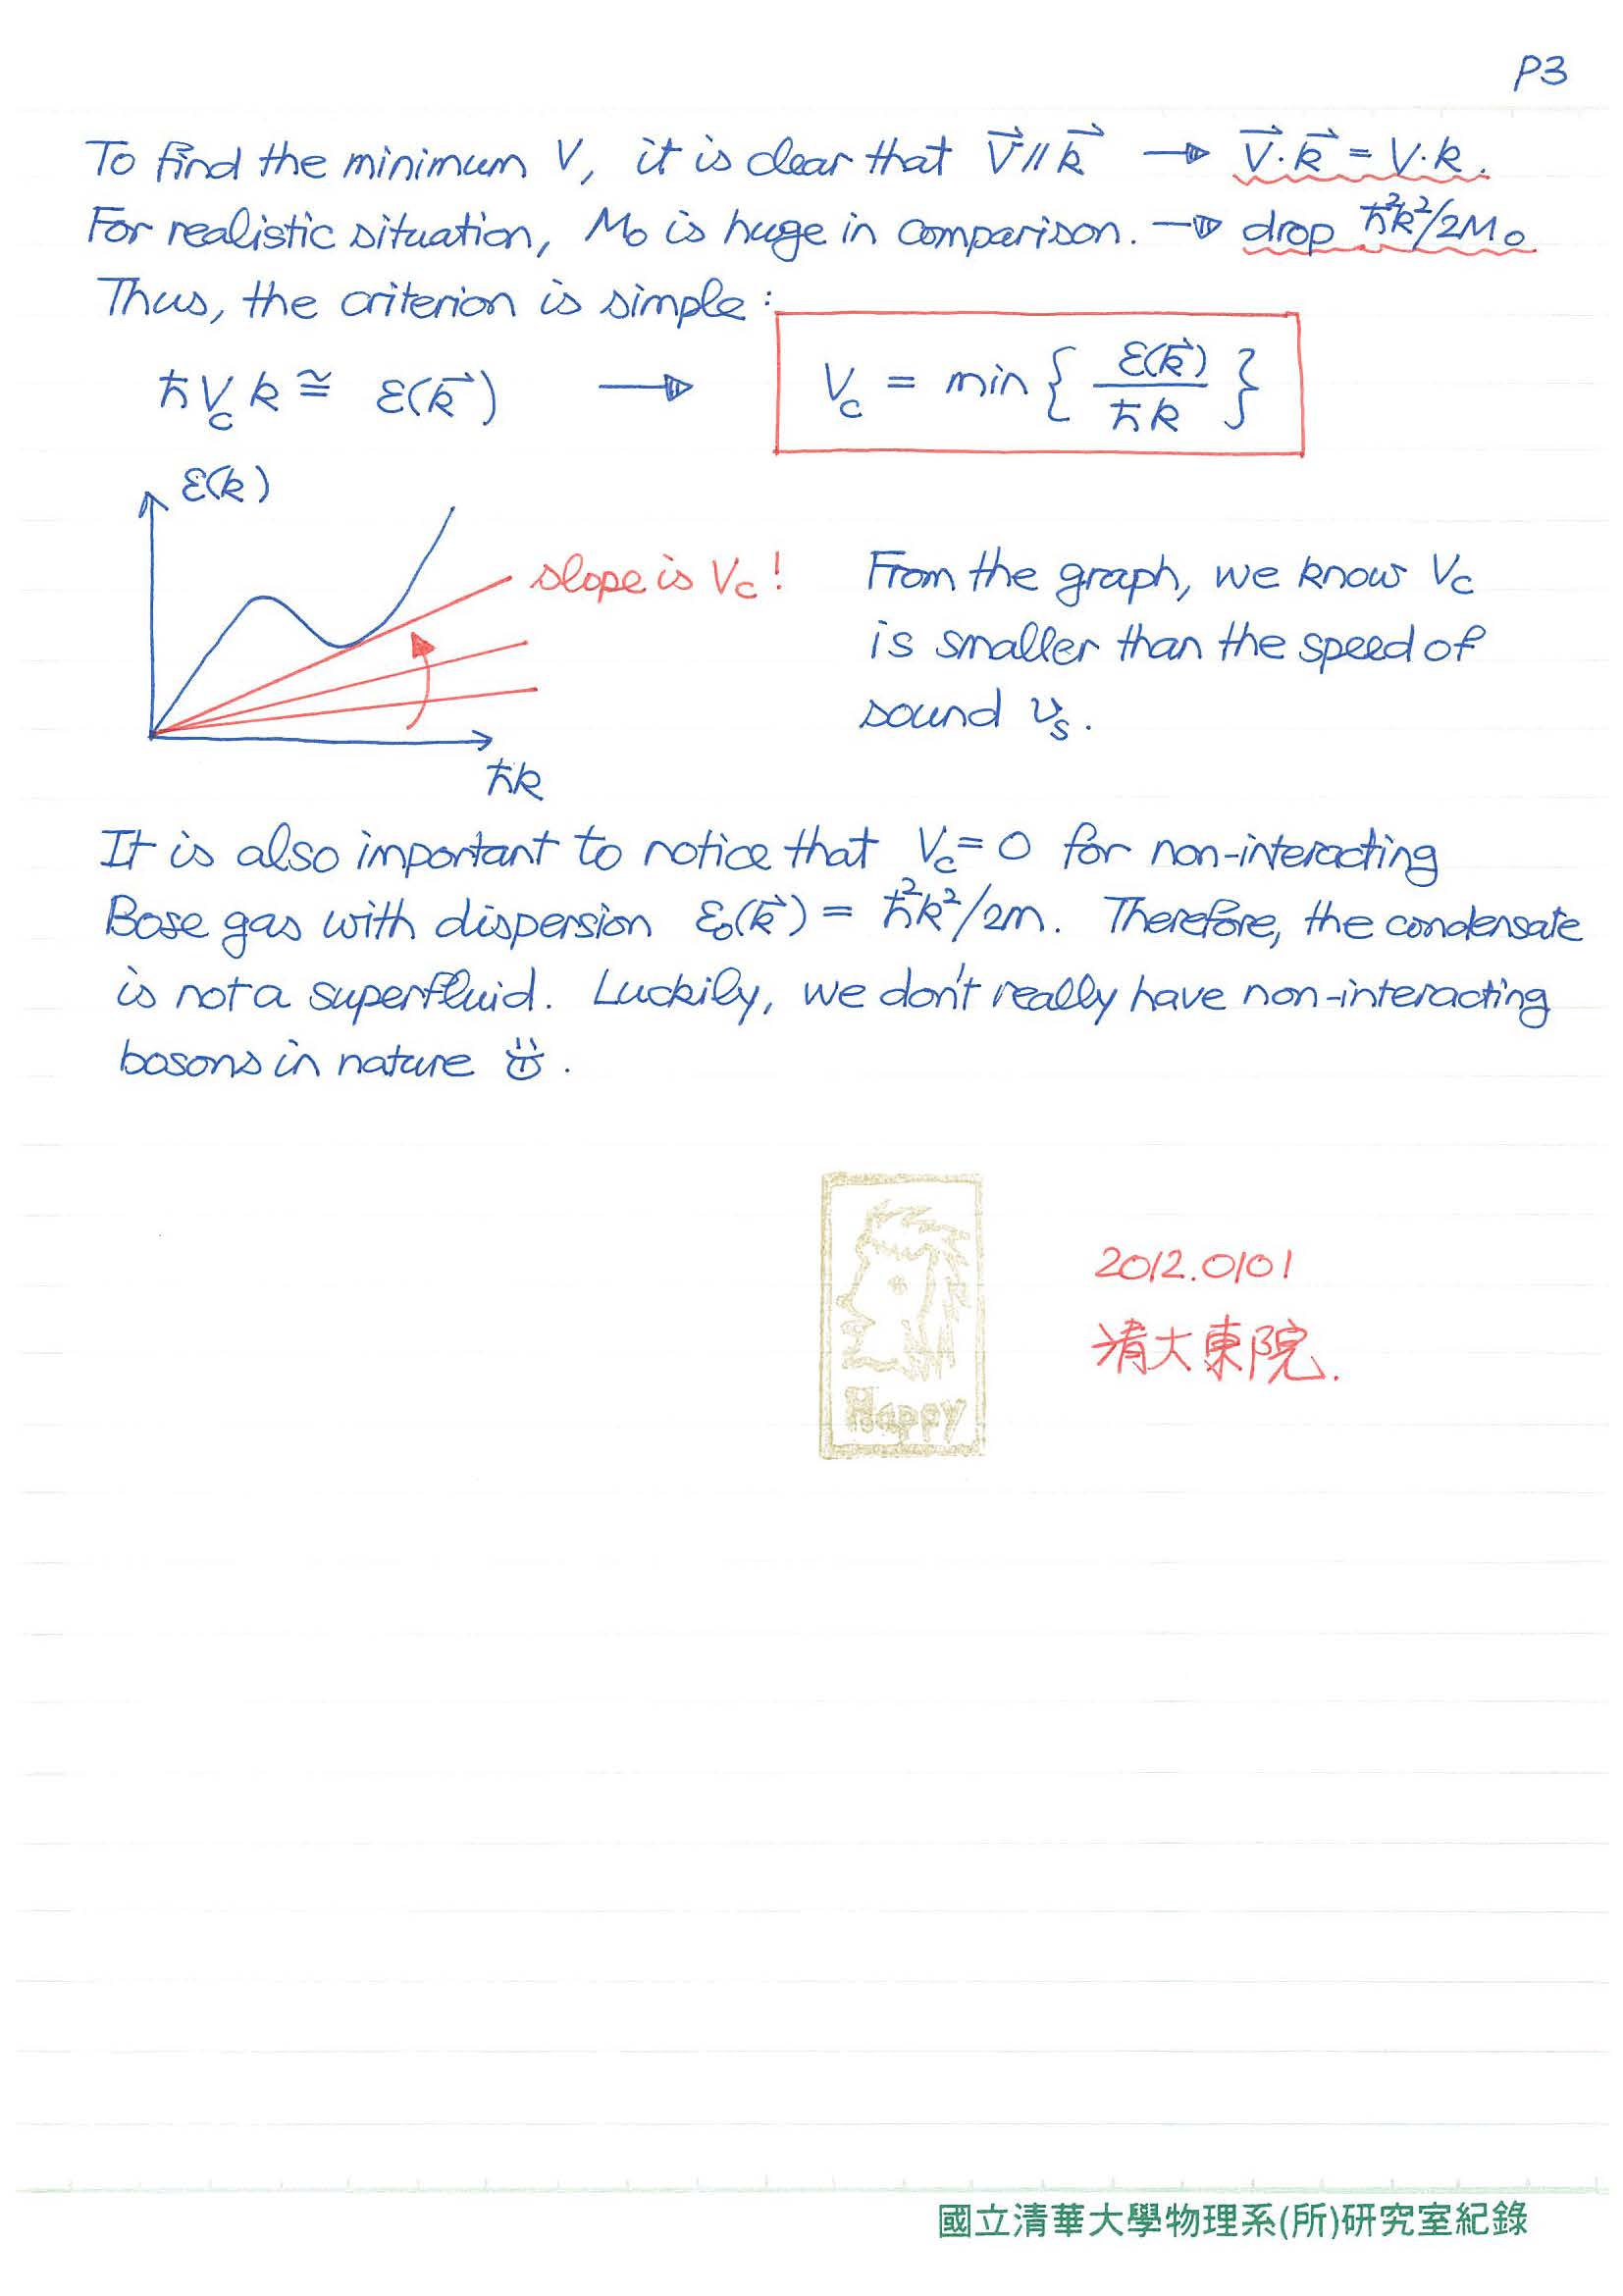 P3
To find the minimum V, it is clear that V⃗ // k⃗ → V⃗·k⃗ = V·k.
For realistic situation, M₀ is huge in comparison. → drop ħ²k²/2M₀
Thus, the criterion is simple:
ħV_c k ≅ ε(k⃗) → V_c = min { ε(k⃗) / ħk }
ε(k)
slope is V_c!
ħk
From the graph, we know V_c
is smaller than the speed of
sound v_s.
It is also important to notice that V_c = 0 for non-interacting
Bose gas with dispersion ε₀(k⃗) = ħ²k²/2m. Therefore, the condensate
is not a superfluid. Luckily, we don't really have non-interacting
bosons in nature ☺.
Happy
2012.0101
清大東院.
國立清華大學物理系(所)研究室紀錄